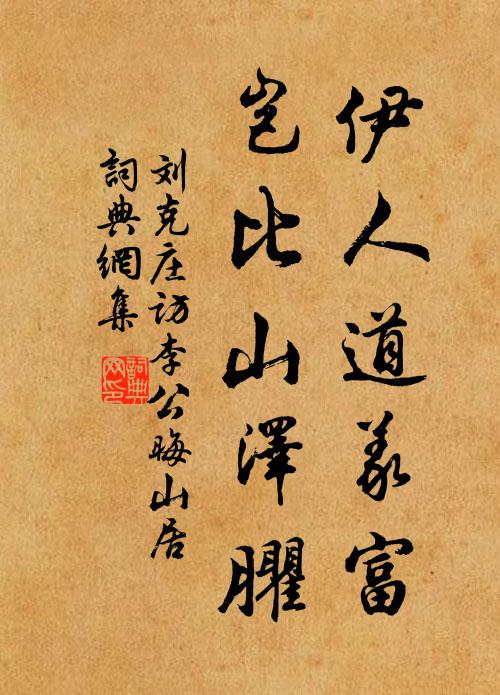 伊人道義富
豈比山澤臞
刘克庄访李公晦山居
詞典網集
詞典网印